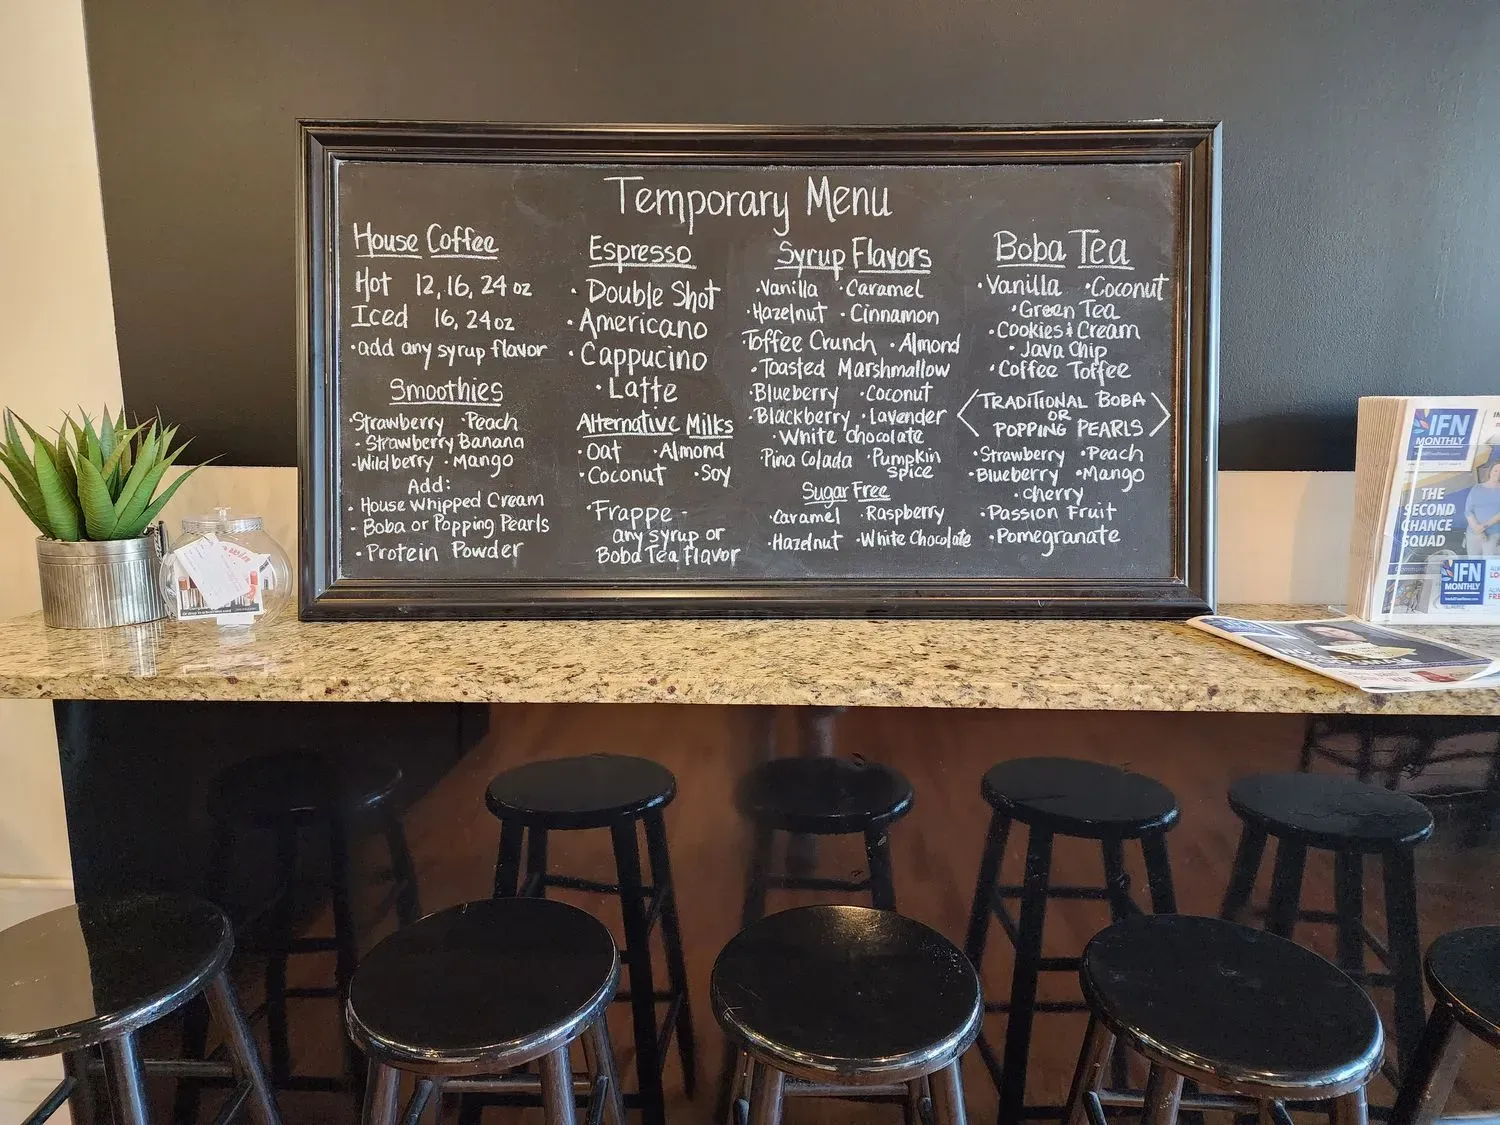 Temporary Menu
House Coffee
Hot 12, 16, 24 oz
Iced 16, 24 oz
·add any syrup flavor
Smoothies
·Strawberry ·Peach
·Strawberry Banana
·Wildberry ·Mango
Add:
·House Whipped Cream
·Boba or Popping Pearls
·Protein Powder
Espresso
·Double Shot
·Americano
·Cappucino
·Latte
Alternative Milks
·Oat ·Almond
·Coconut ·Soy
·Frappe -
any syrup or
Boba Tea Flavor
Syrup Flavors
·Vanilla ·Caramel
·Hazelnut ·Cinnamon
·Toffee Crunch ·Almond
·Toasted Marshmallow
·Blueberry ·Coconut
·Blackberry ·Lavender
·White chocolate
·Pina Colada ·Pumpkin
spice
Sugar Free
·Caramel ·Raspberry
·Hazelnut ·White Chocolate
Boba Tea
·Vanilla ·Coconut
·Green Tea
·Cookies & Cream
·Java Chip
·Coffee Toffee
TRADITIONAL BOBA
OR
POPPING PEARLS
·Strawberry ·Peach
·Blueberry ·Mango
·cherry
·Passion Fruit
·Pomegranate
IFN
MONTHLY
THE
SECOND
CHANCE
SQUAD
IFN
MONTHLY